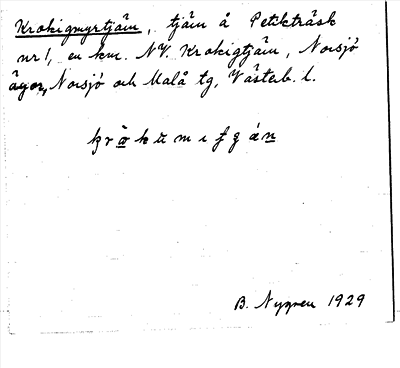 Krokigmyrtjärn, tjärn å Petikträsk
nr 1, en km. NV. Krokigtjärn, Norsjö
ägor, Norsjö och Malå tg, Västerb. l.
B. Nygren 1929